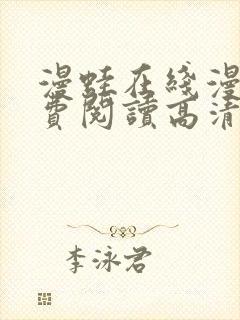 漫蛙在綫漫
費閱讀高清
李泳君